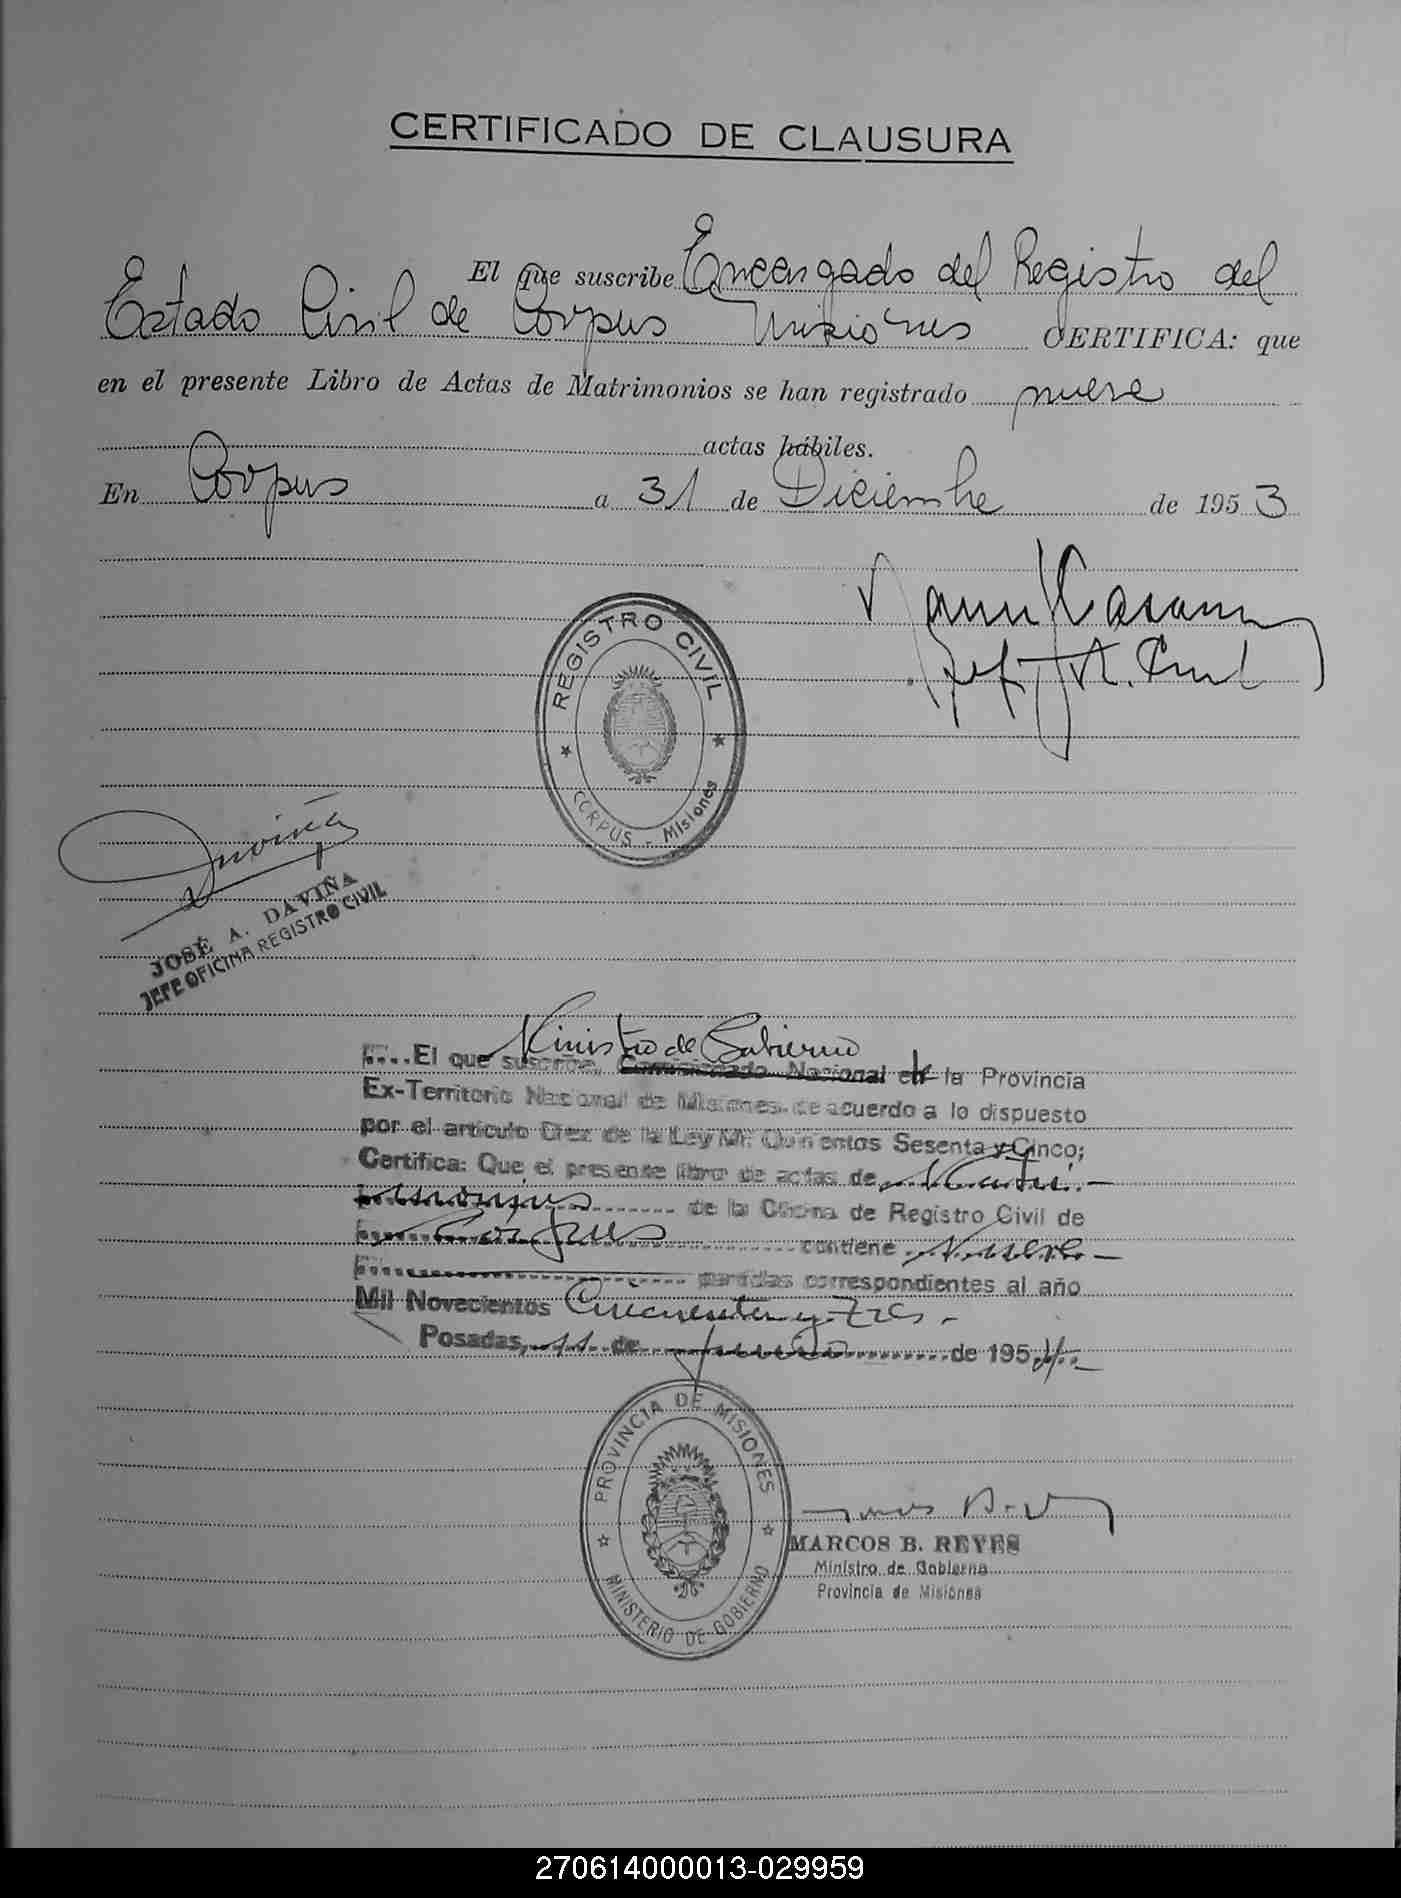 CERTIFICADO DE CLAUSURA
El que suscribe Encargado del Registro del
Estado Civil de Corpus Misiones CERTIFICA: que
en el presente Libro de Actas de Matrimonios se han registrado nueve
actas hábiles.
En Corpus a 31 de Diciembre de 1953
REGISTRO CIVIL
CORPUS - Misiones
Daviña
JOSÉ A. DAVIÑA
JEFE OFICINA REGISTRO CIVIL
Ministro de Gobierno
El que suscribe, Comisionado Nacional en la Provincia
Ex-Territorio Nacional de Misiones, de acuerdo a lo dispuesto
por el artículo Diez de la Ley Mil Quinientos Sesenta y Cinco;
Certifica: Que el presente libro de actas de
de la Oficina de Registro Civil de
Corpus contiene Nueve
partidas correspondientes al año
Mil Novecientos Cincuenta y Tres.
Posadas, 11 de de 1954.
PROVINCIA DE MISIONES
MINISTERIO DE GOBIERNO
MARCOS B. REYES
Ministro de Gobierno
Provincia de Misiones
270614000013-029959